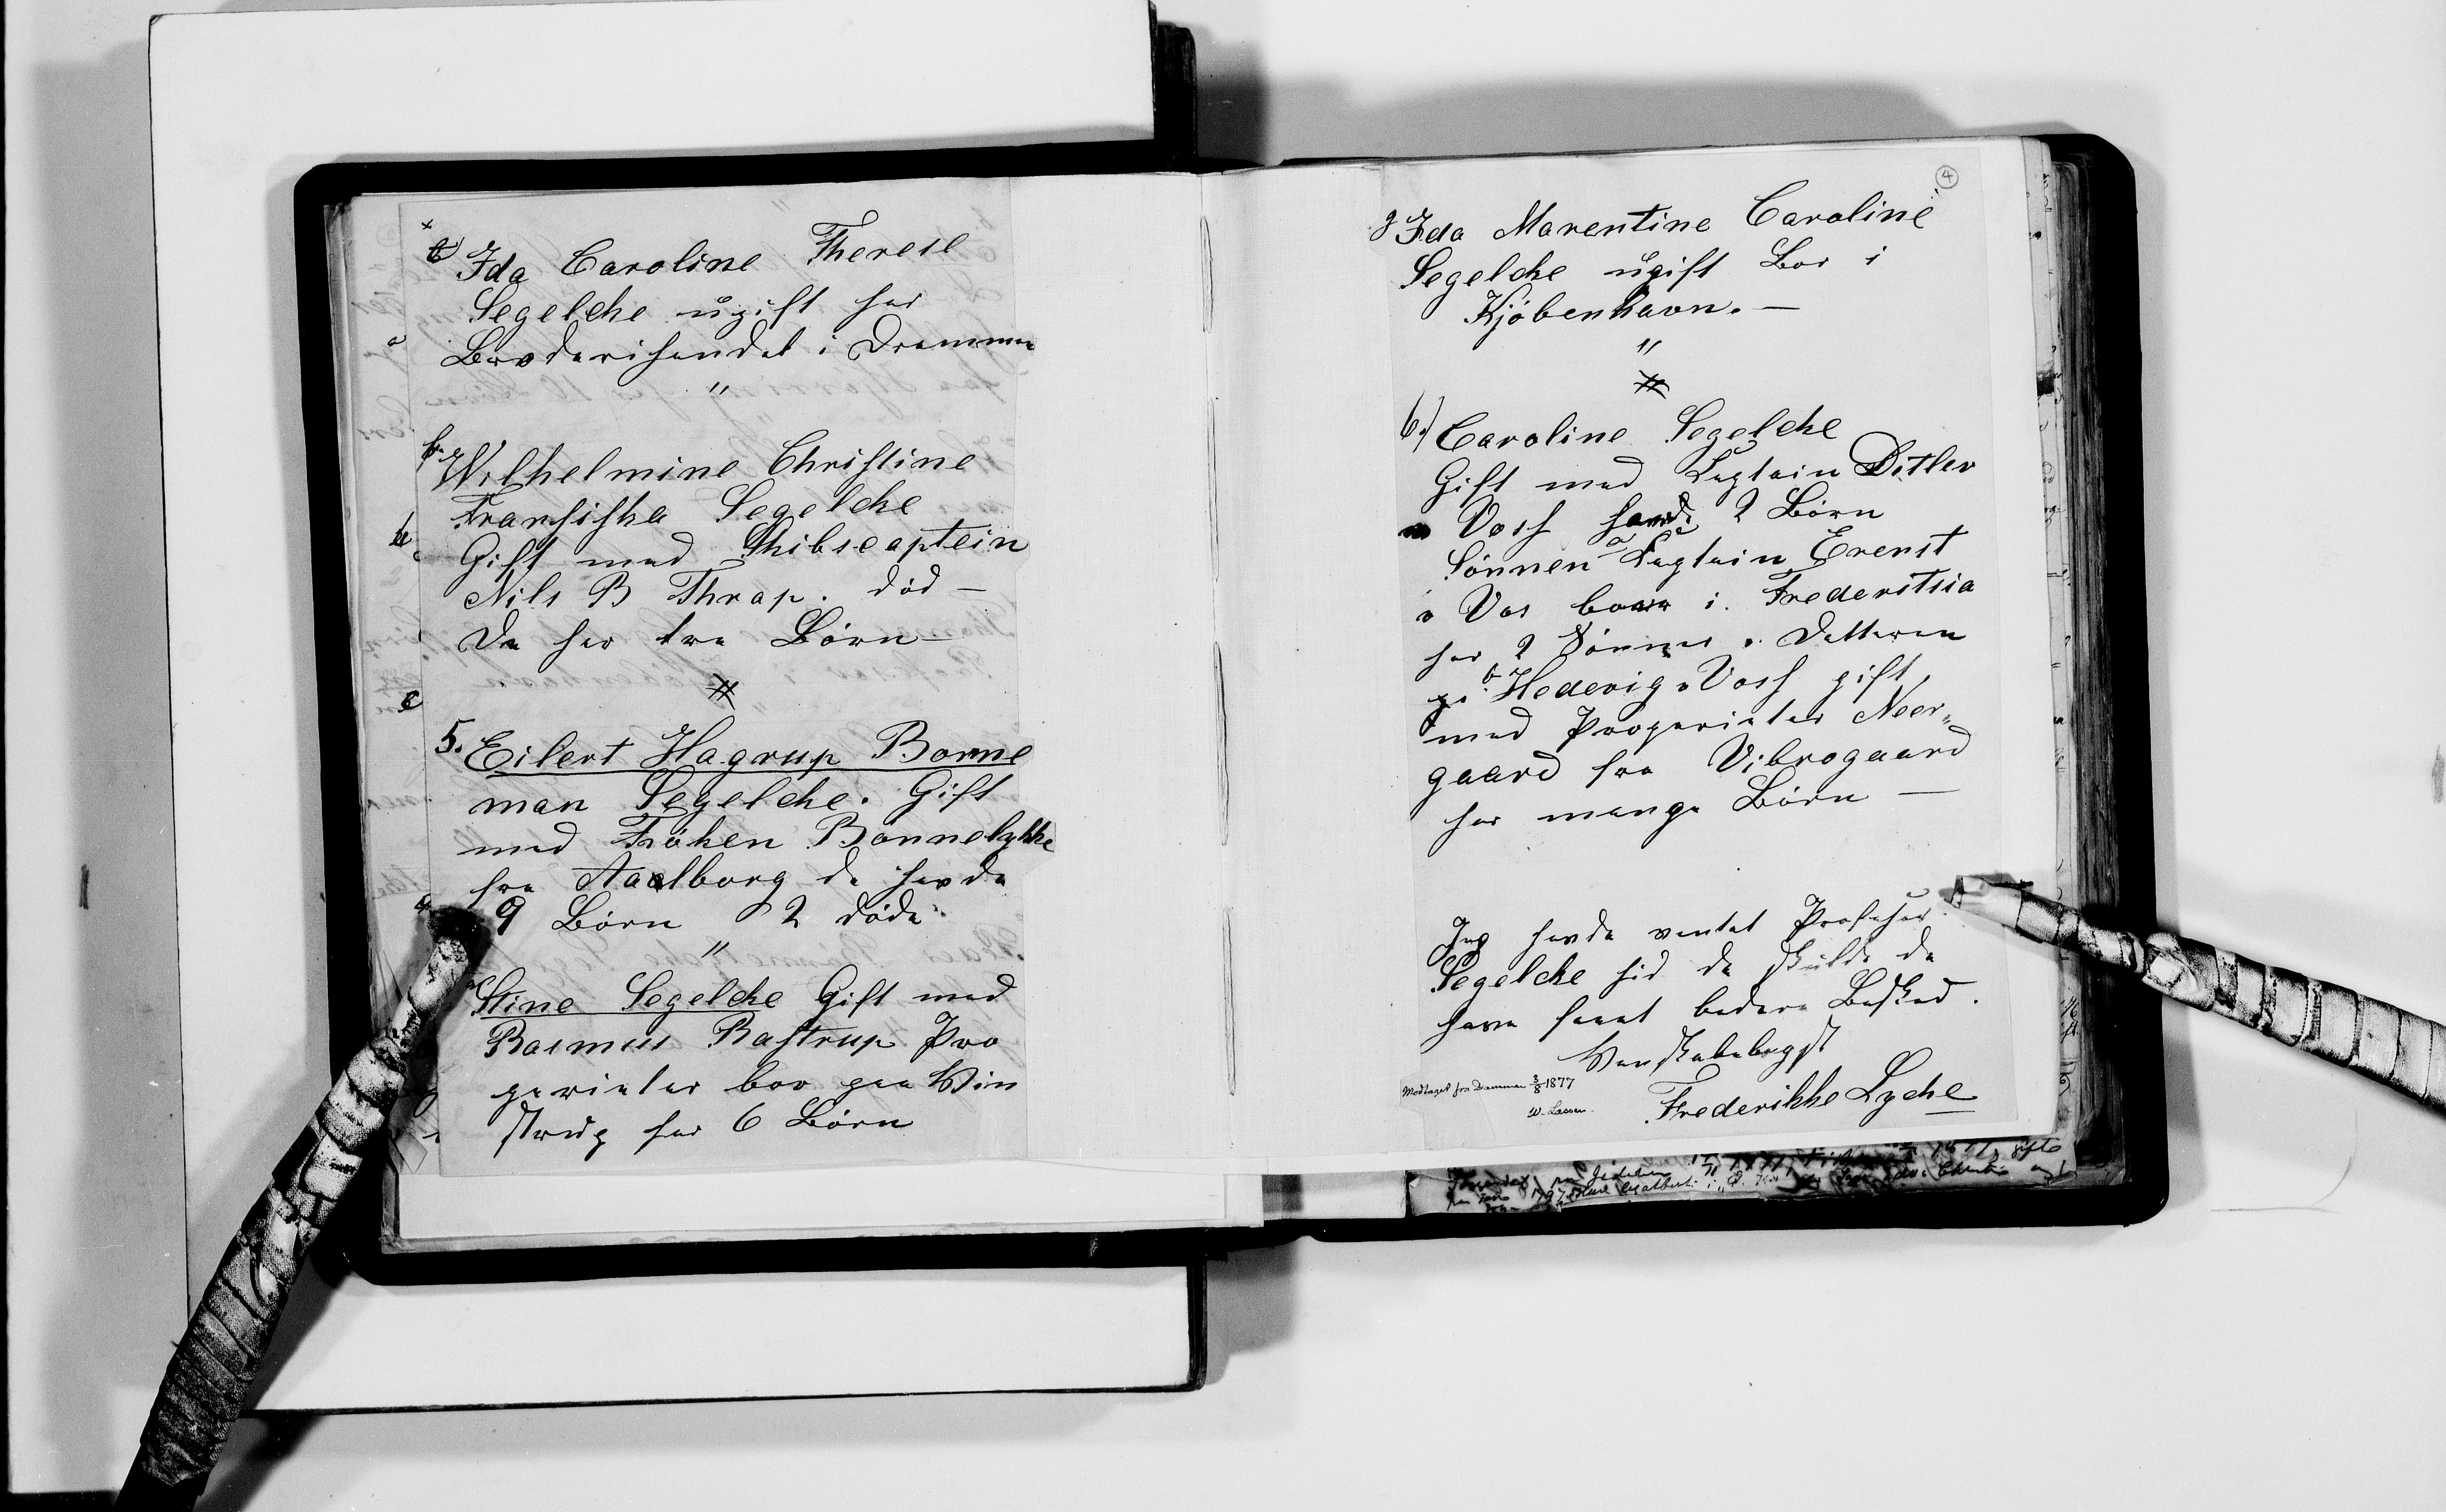 Ida Caroline Therese
Segelche ugift har
Broderihandel i Drammen
"
Wilhelmine Christine
Fransiska Segelche
Gift med Skibscaptein
Nils B Thrap. død —
De har tre Børn —
5. Eilert Hagrup Borne
man Segelche. Gift
med Frøken Bonnelykke
fra Aalborg de havde
9 Børn 2 døde
"
Stine Segelche Gift med
Rasmus Rastrup Pro
perietær bor paa Win
strup har 6 Børn
4
g Ida Marentine Caroline
Segelche ugift Bor i
Kjøbenhavn. —
"
6.) Caroline Segelche
Gift med Kaptain Ditlev
Voss havde 2 Børn
Sønnen a Kaptain Erenst
Vos boer i Frederitsia
har 2 Sønner. Datteren
b Hedevig Voss gift
med Properietær Neer„
gaard fra Vibrogaard
har mange Børn —
Jeg havde ventet Professor
Segelche hid da skulde de
have faaet bedere Besked.
Venskabeligst
Frederikke Lyche
Modtaget fra Drammen 3/8 1877
W. Lassen.